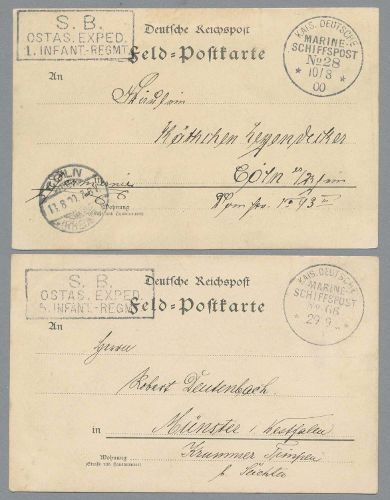 S. B.
OSTAS. EXPED.
1. INFANT.-REGMT.
Deutsche Reichspost
Feld-Postkarte
KAIS. DEUTSCHE
MARINE-
SCHIFFSPOST
No 28
10/8
00
An
Fräulein
Käthchen Zegendecker
Cöln a/Rhein
CÖLN
Wohnung
S. B.
OSTAS. EXPED.
INFANT.-REGMT.
Deutsche Reichspost
Feld-Postkarte
KAIS. DEUTSCHE
MARINE-
SCHIFFSPOST
No 66
29 9
An
Herrn
Robert Deutenbach
in Münster i. Westfalen
Wohnung
(Straße und Hausnummer)
Krummer Timpen